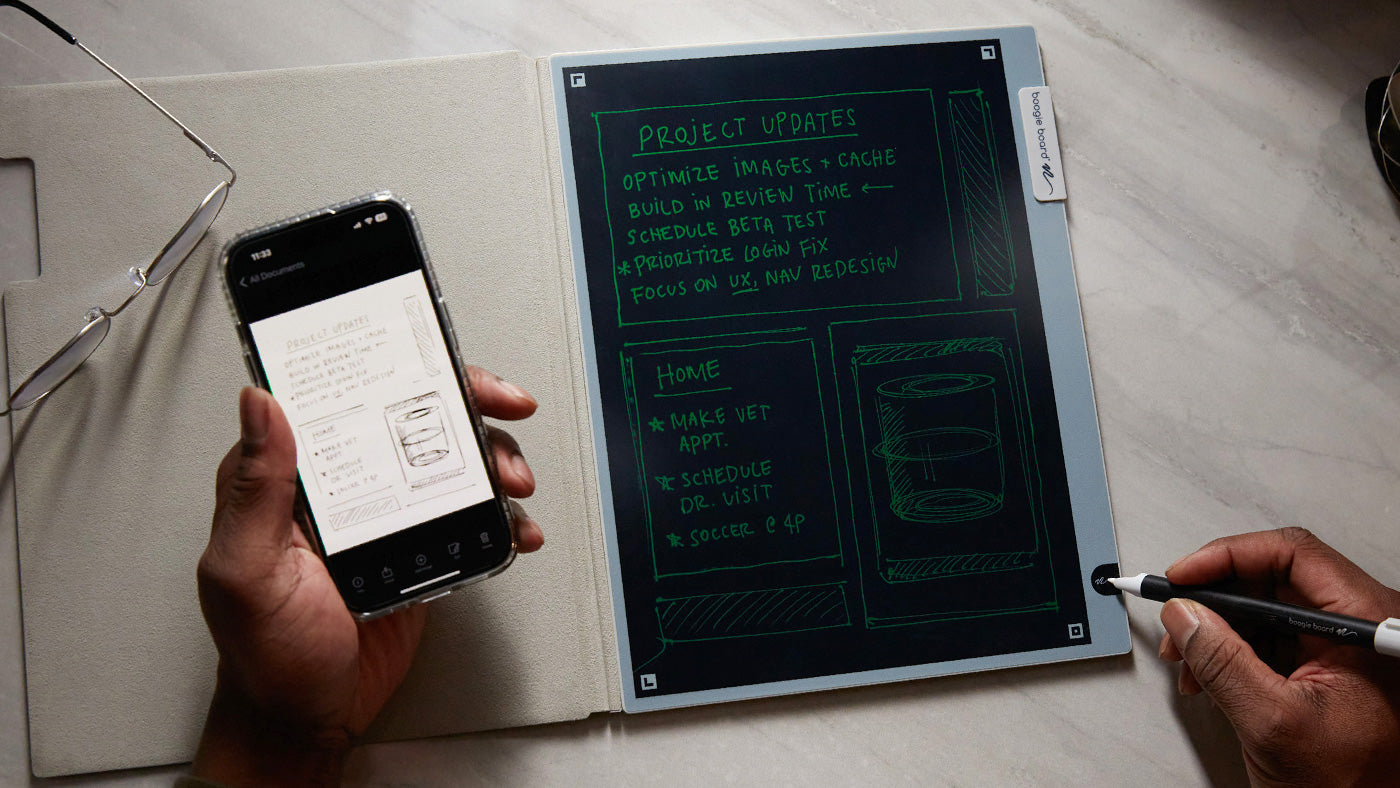 11:33
All Documents
PROJECT UPDATES
OPTIMIZE IMAGES + CACHE
BUILD IN REVIEW TIME ←
SCHEDULE BETA TEST
*PRIORITIZE LOGIN FIX
FOCUS ON UX, NAV REDESIGN
HOME
* MAKE VET
APPT.
* SCHEDULE
DR. VISIT
* SOCCER @ 4P
PROJECT UPDATES
OPTIMIZE IMAGES + CACHE
BUILD IN REVIEW TIME ←
SCHEDULE BETA TEST
*PRIORITIZE LOGIN FIX
FOCUS ON UX, NAV REDESIGN
HOME
★ MAKE VET
APPT.
★ SCHEDULE
DR. VISIT
★ SOCCER @ 4P
boogie board
boogie board